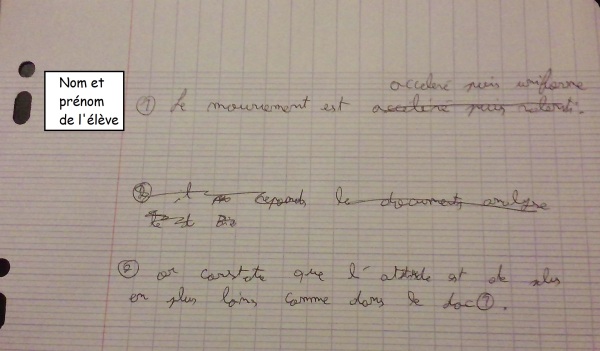 Nom et
prénom
de l'élève
accéléré puis uniforme
① Le mouvement est accéléré puis ralenti.
②
répond le documents analyse
② on constate que l'attitde est de plus
en plus loins comme dans le doc①.